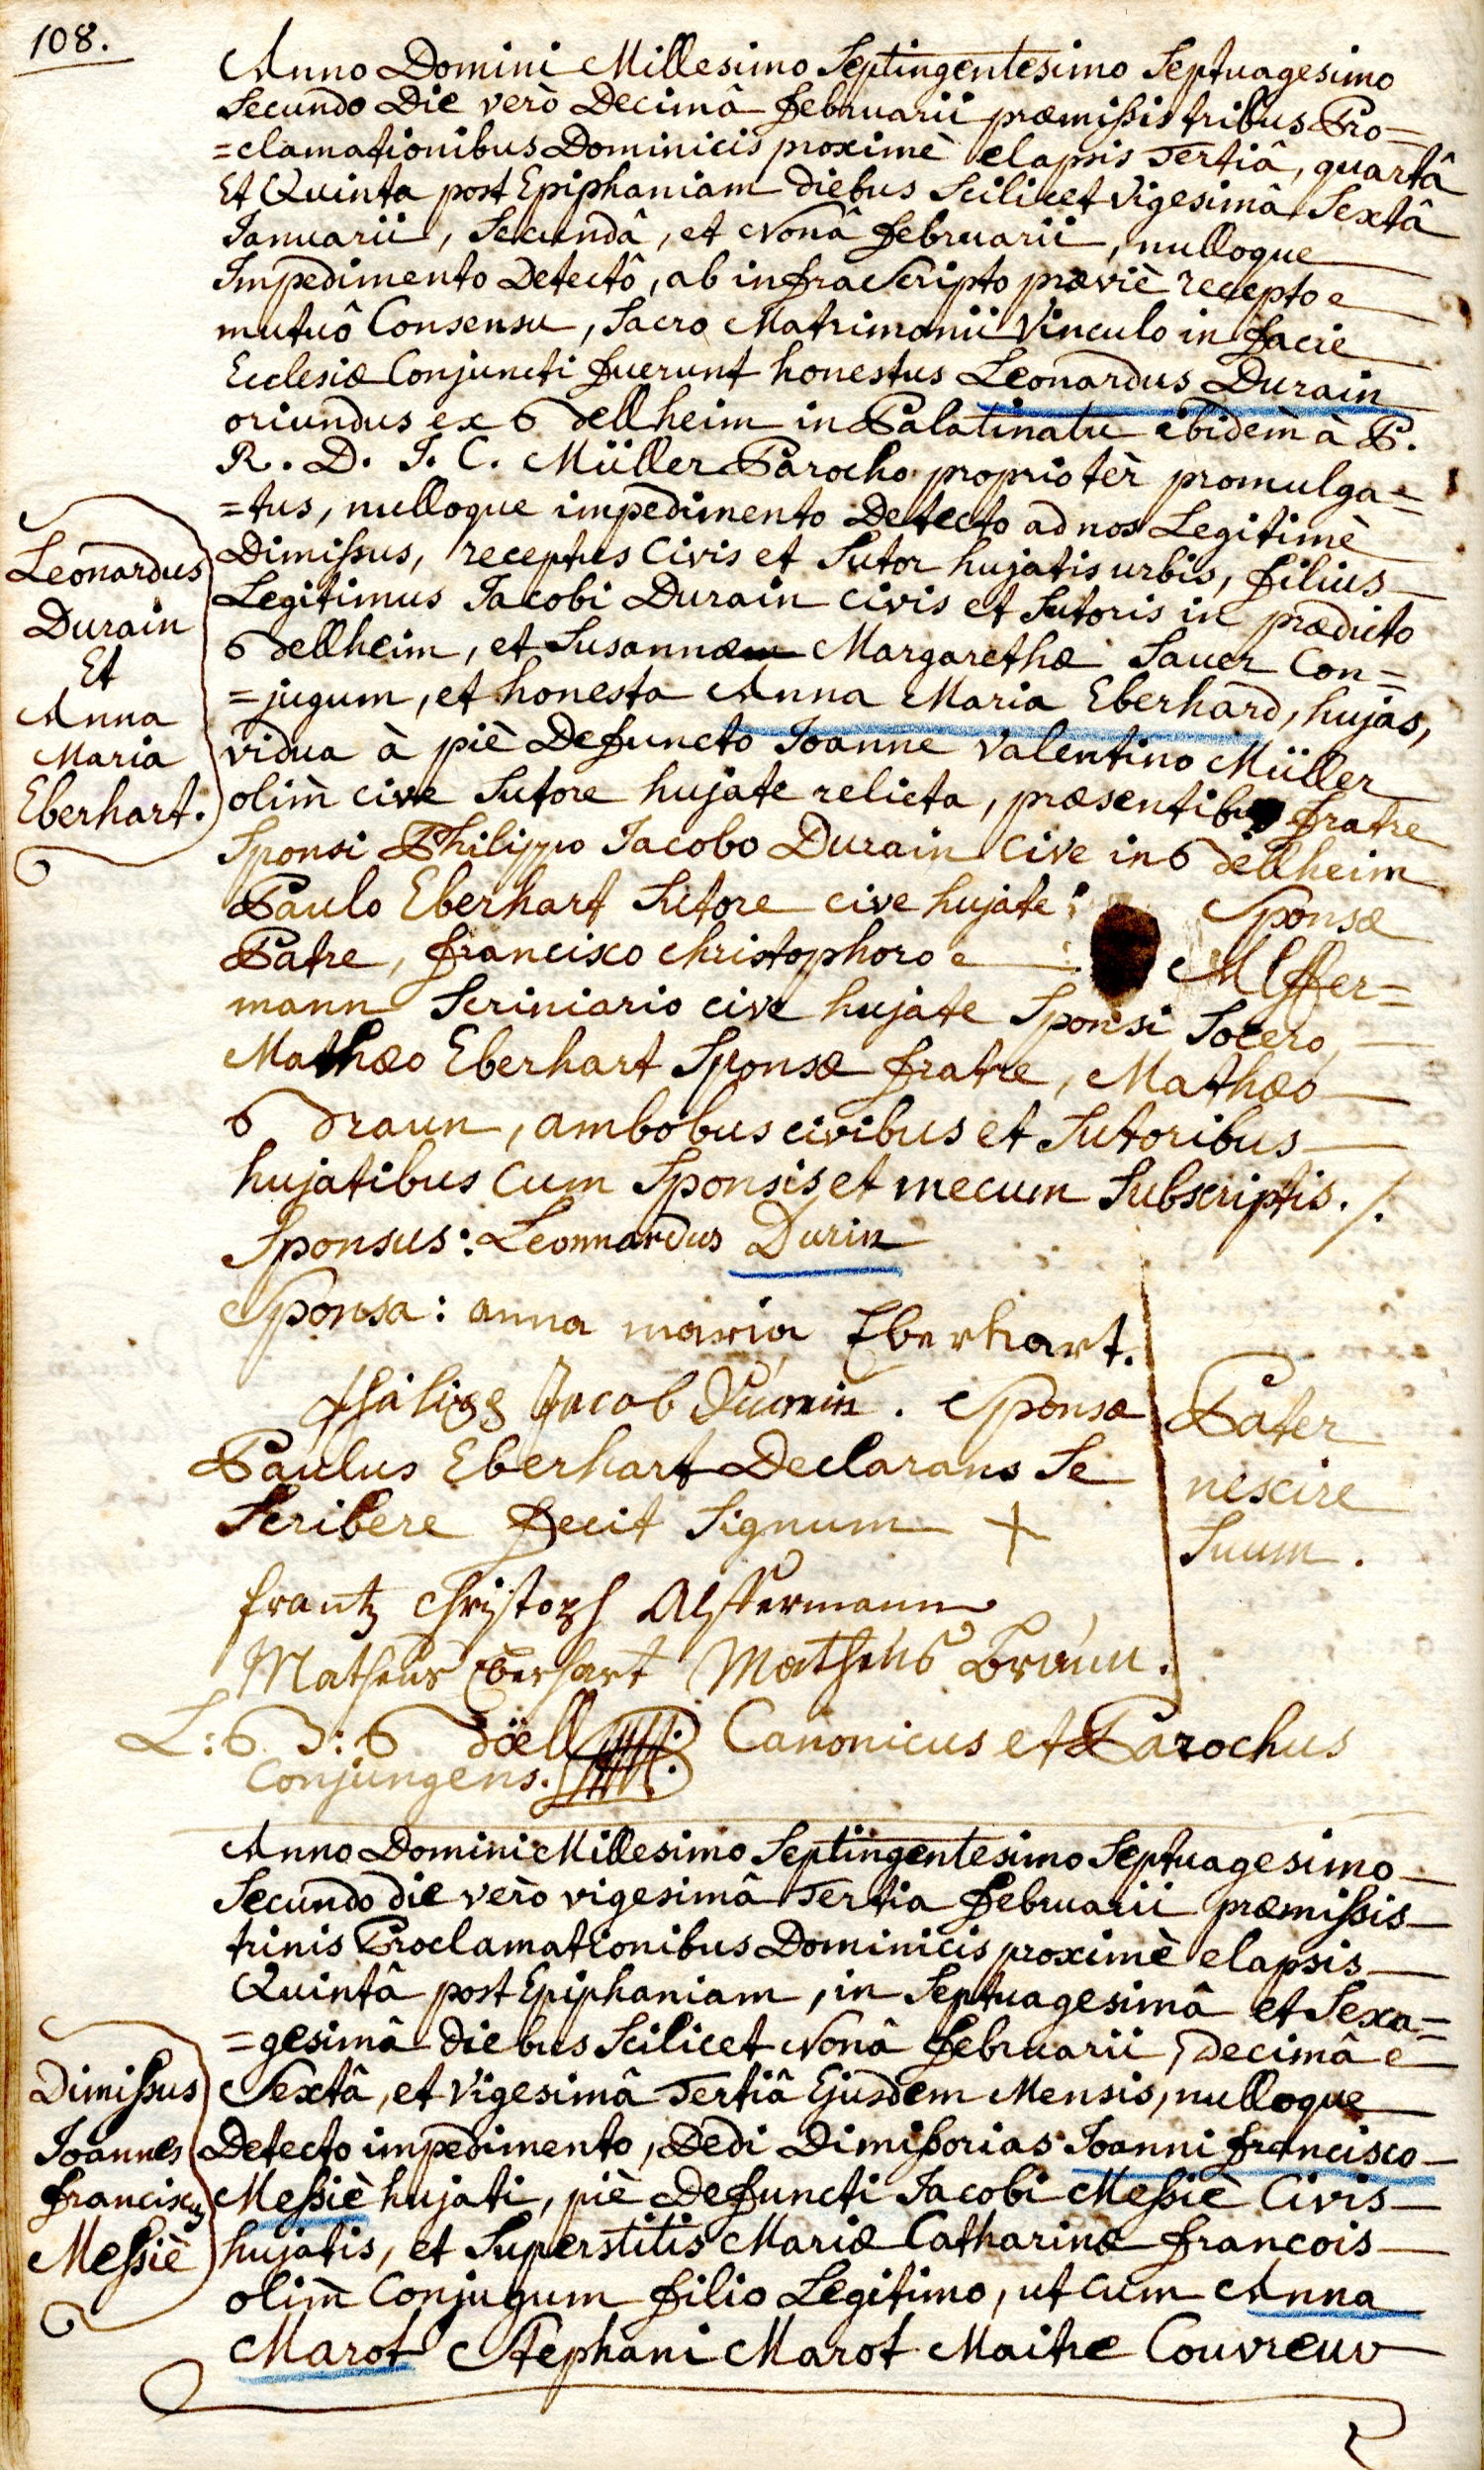 108.
Anno Domini Millesimo Septingentesimo Septuagesimo
Secundo Die verò Decimâ februarii præmissis tribus Pro=
=clamationibus Dominicis proximè elapsis Tertiâ, quartâ
Et Quinta post Epiphaniam diebus Scilicet vigesimâ Sextâ
Januarii, Secundâ, et Nonâ februarii, nulloque
Impedimento Detectô, ab infrascripto præviè recepto
mutuô Consensu, Sacro Matrimonii Vinculo in facie
Ecclesiæ Conjuncti fuerunt honestus Leonardus Durain
oriundus ex Bellheim in Palatinatu ibidem à P.
R. D. J. C. Müller Parocho proprio tèr promulga=
=tus, nulloque impedimento Detecto ad nos Legitimè
Dimissus, receptus Civis et Sutor hujatis urbis, filius
Legitimus Jacobi Durain civis et Sutoris in prædicto
Bellheim, et Susannæ Margarethæ Sauer Con=
=jugum, et honesta Anna Maria Eberhard, hujas,
vidua à piè Defuncto Joanne Valentino Müller
olim cive Sutore hujate relicta, præsentibus fratre
Sponsi Philippo Jacobo Durain Cive in Bellheim
Paulo Eberhart Sutore cive hujate Sponsæ
Patre, francisco christophoro Alffer=
mann Scriniario cive hujate Sponsi Socero,
Mathæo Eberhart Sponsæ fratre, Mathæo
Braun, ambobus civibus et Sutoribus
hujatibus Cum Sponsis et mecum Subscriptis. /.
Leonardus
Durain
Et
Anna
Maria
Eberhart.
Sponsus: Leonnardus Durin
Sponsa: anna maria Eberhart.
Philipp Jacob Durain. Sponsæ Pater
Paulus Eberhart Declarans Se nescire
Scribere fecit Signum + Suum.
frantz Christoph Alffermann
Matheus Eberhart Matheus Braun.
L: B: Böell Canonicus et Parochus
Conjungens.
Anno Domini Millesimo Septingentesimo Septuagesimo
Secundo die verò vigesimâ Tertia februarii præmissis
trinis Proclamationibus Dominicis proximè elapsis
Quintâ post Epiphaniam, in Septuagesimâ et Sexa=
=gesimâ diebus Scilicet Nonâ februarii, decimâ
Sextâ, et Vigesimâ Tertiâ Ejusdem Mensis, nulloque
Detecto impedimento, Dedi Dimissorias Joanni francisco
Messiè hujati, piè Defuncti Jacobi Messiè Civis
hujatis, et Superstitis Mariæ Catharinæ francois
olim Conjugum filio Legitimo, ut cum Anna
Marot Stephani Marot Maitre Couvreur
Dimissus
Joannes
franciscus
Messiè